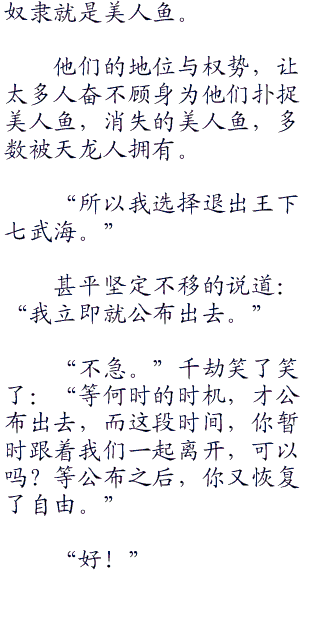 奴隶就是美人鱼。
他们的地位与权势，让
太多人奋不顾身为他们扑捉
美人鱼，消失的美人鱼，多
数被天龙人拥有。
“所以我选择退出王下
七武海。”
甚平坚定不移的说道：
“我立即就公布出去。”
“不急。”千劫笑了笑
了：“等何时的时机，才公
布出去，而这段时间，你暂
时跟着我们一起离开，可以
吗？等公布之后，你又恢复
了自由。”
“好！”